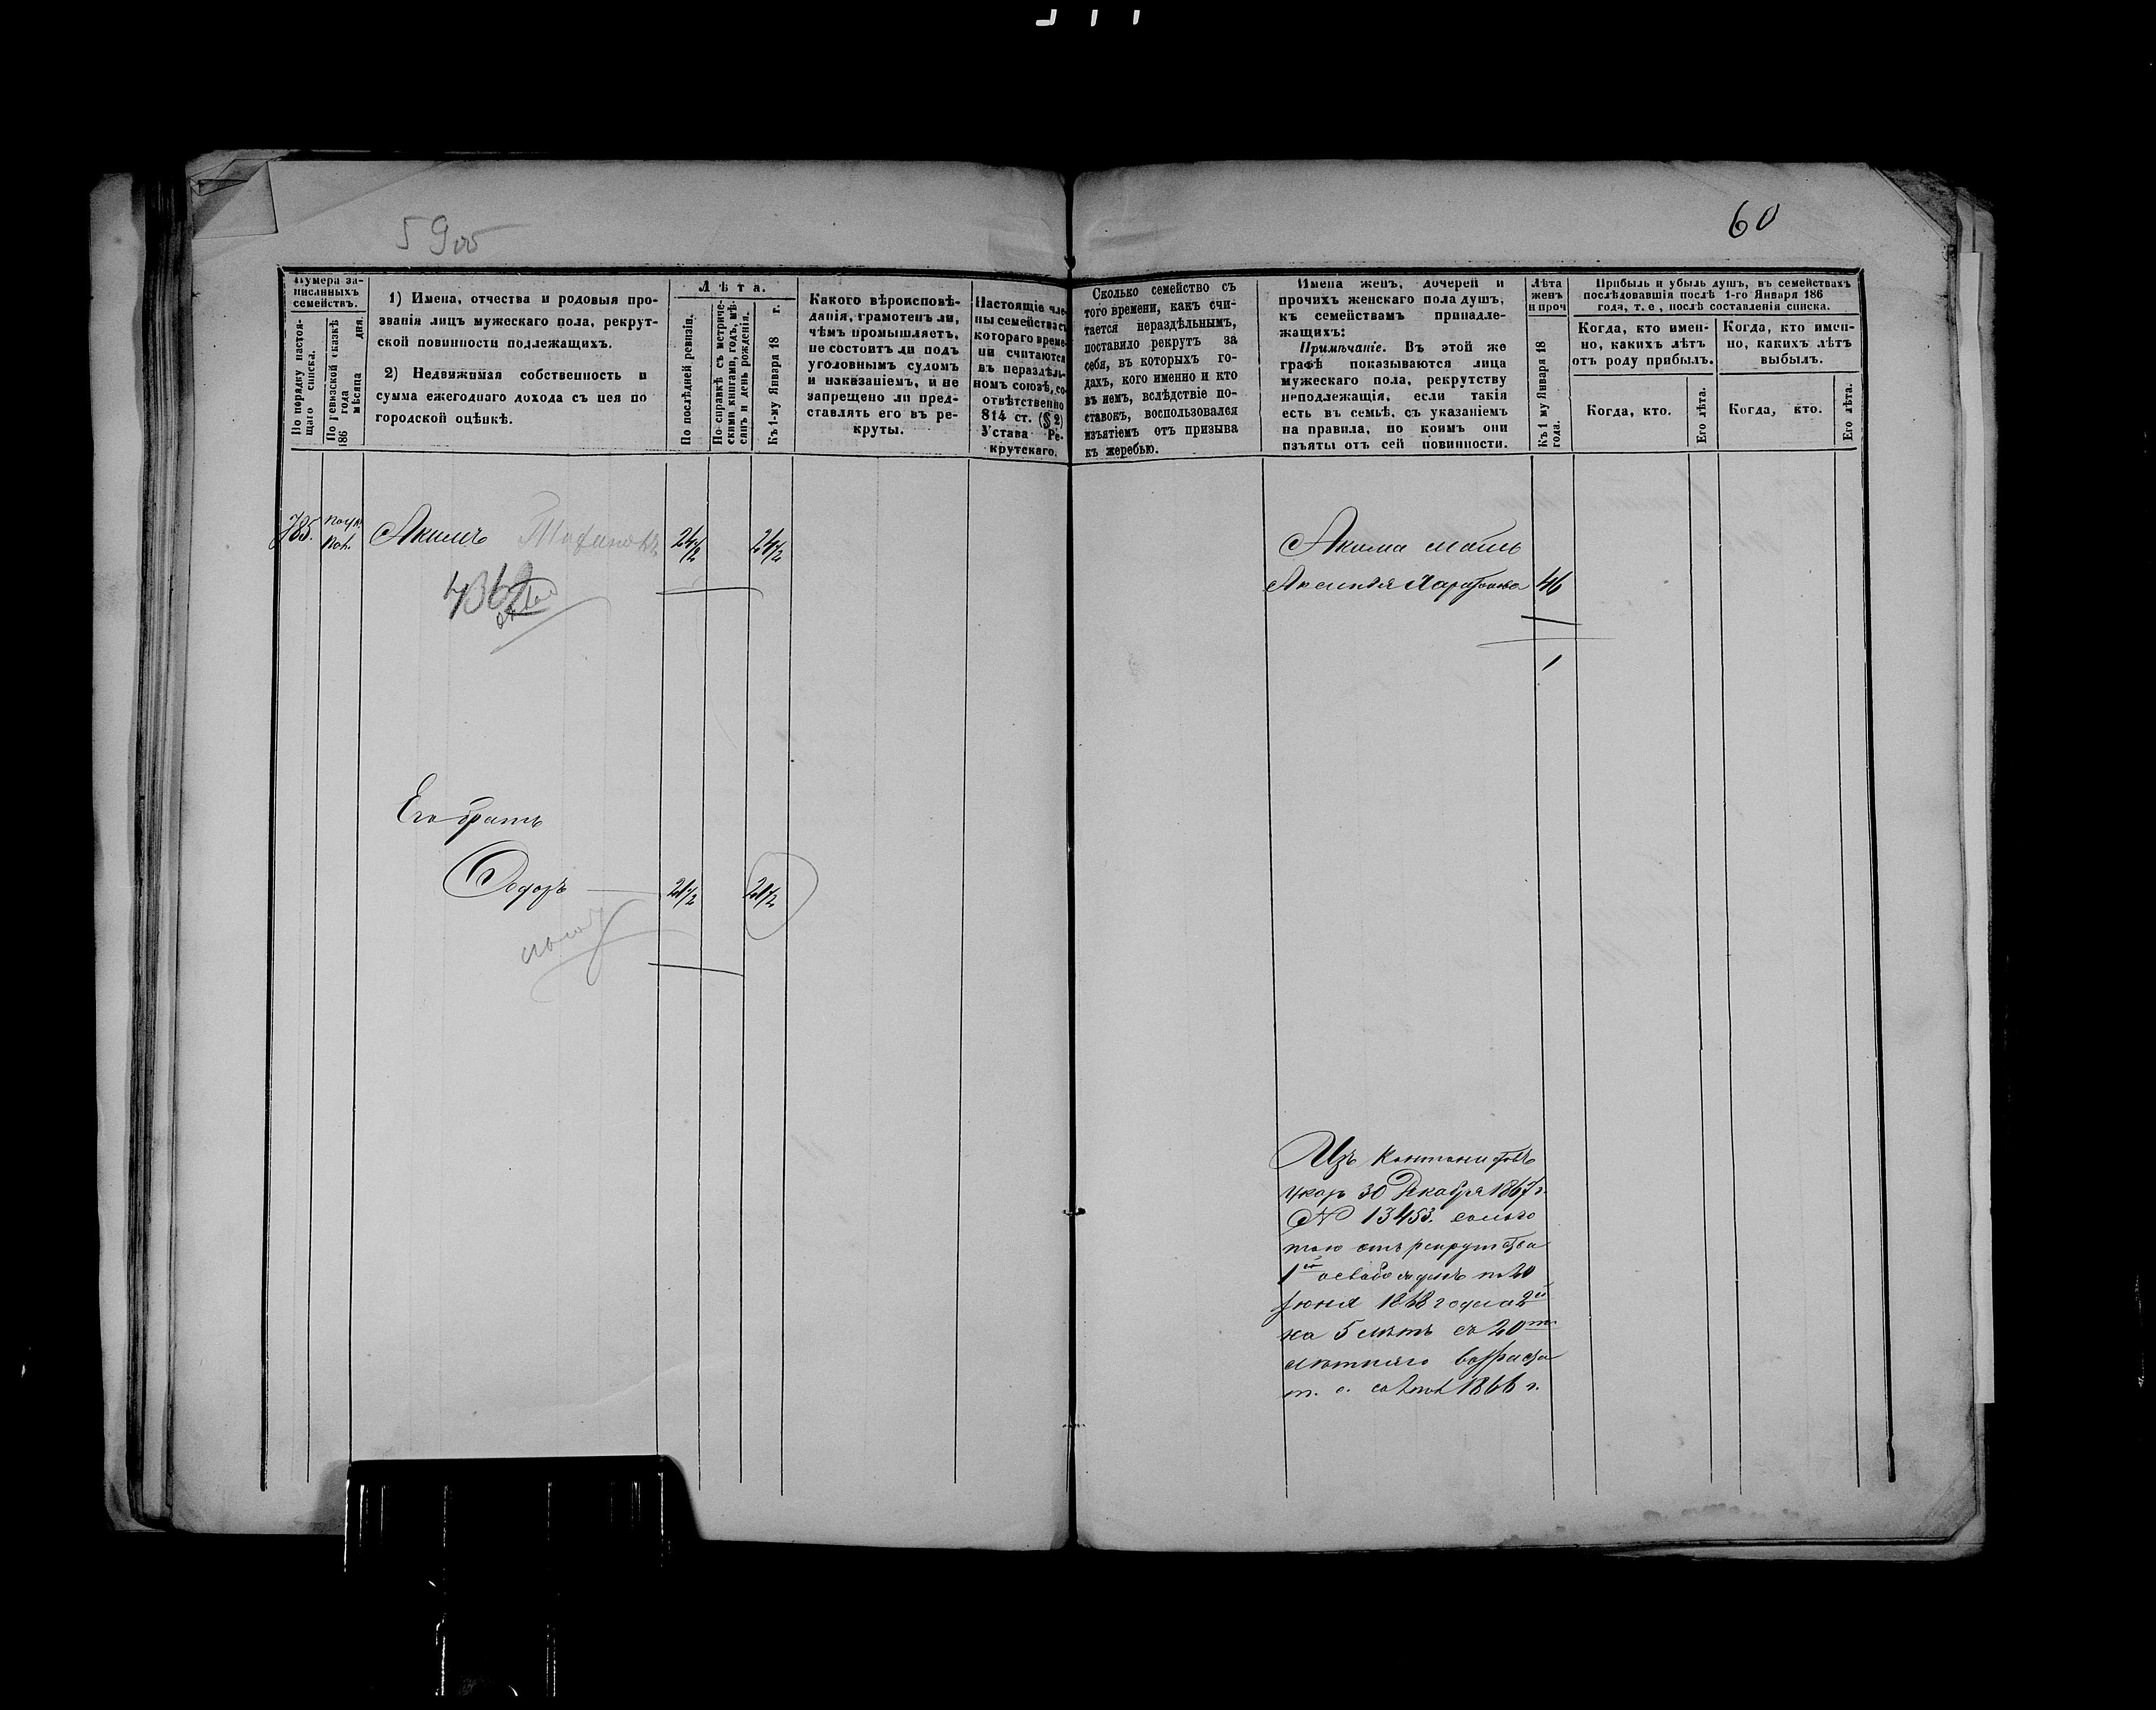 60
Нумера за-
писанныхъ
семействъ.
По порядку настоя-
щаго списка.
По ревизской сказкѣ
186 года
мѣсяца дня.
1) Имена, отчества и родовыя про-
званія лицъ мужескаго пола, рекрут-
ской повинности подлежащихъ.
2) Недвижимая собственность и
сумма ежегоднаго дохода съ нея по
городской оцѣнкѣ.
Лѣта.
По послѣдней ревизіи.
По справкѣ съ метриче-
скими книгами, годъ, мѣ-
сяцъ и день рожденія.
Къ 1-му Января 18 г.
Какого вѣроисповѣ-
данія, грамотенъ ли,
чѣмъ промышляетъ,
не состоитъ ли подъ
уголовнымъ судомъ
и наказаніемъ, и не
запрещено ли пред-
ставлять его въ ре-
круты.
Настоящіе чле-
ны семейства съ
котораго време-
ни считаются
въ нераздѣль-
номъ союзѣ, со-
отвѣтственно
814 ст. (§ 2)
Устава Ре-
крутскаго.
Сколько семейство съ
того времени, какъ счи-
тается нераздѣльнымъ,
поставило рекрутъ за
себя, въ которыхъ го-
дахъ, кого именно и кто
въ немъ, вслѣдствіе по-
ставокъ, воспользовался
изъятіемъ отъ призыва
къ жеребью.
Имена женъ, дочерей и
прочихъ женскаго пола душъ,
къ семействамъ принадле-
жащихъ:
Примѣчаніе. Въ этой же
графѣ показываются лица
мужескаго пола, рекрутству
неподлежащія, если такія
есть въ семьѣ, съ указаніемъ
на правила, по коимъ они
изъяты отъ сей повинности.
Лѣта
женъ
и проч
Къ 1 му Января 18
года.
Прибыль и убыль душъ, въ семействахъ
послѣдовавшія послѣ 1-го Января 186
года, т. е , послѣ составленія списка.
Когда, кто имен-
но, какихъ лѣтъ
отъ роду прибылъ.
Когда, кто.
Его лѣта.
Когда, кто имен-
но, какихъ лѣтъ
выбылъ.
Когда, кто.
Его лѣта.
785.
Акимъ
24 1/2 24 1/2
Акима мать
Аксинья Харитонова 46
1
Его братъ
Ѳедоръ 21 1/2 21 1/2
Изъ Кантонистовъ
указ 30 Декабря 1867 г.
№ 13453. съ льго
тою отъ рекрутства
1й освобожденъ по 20
Іюня 1868 года а 2й
на 5 лѣтъ съ 20ти
лѣтняго возраста
т. е. съ 1866 г.